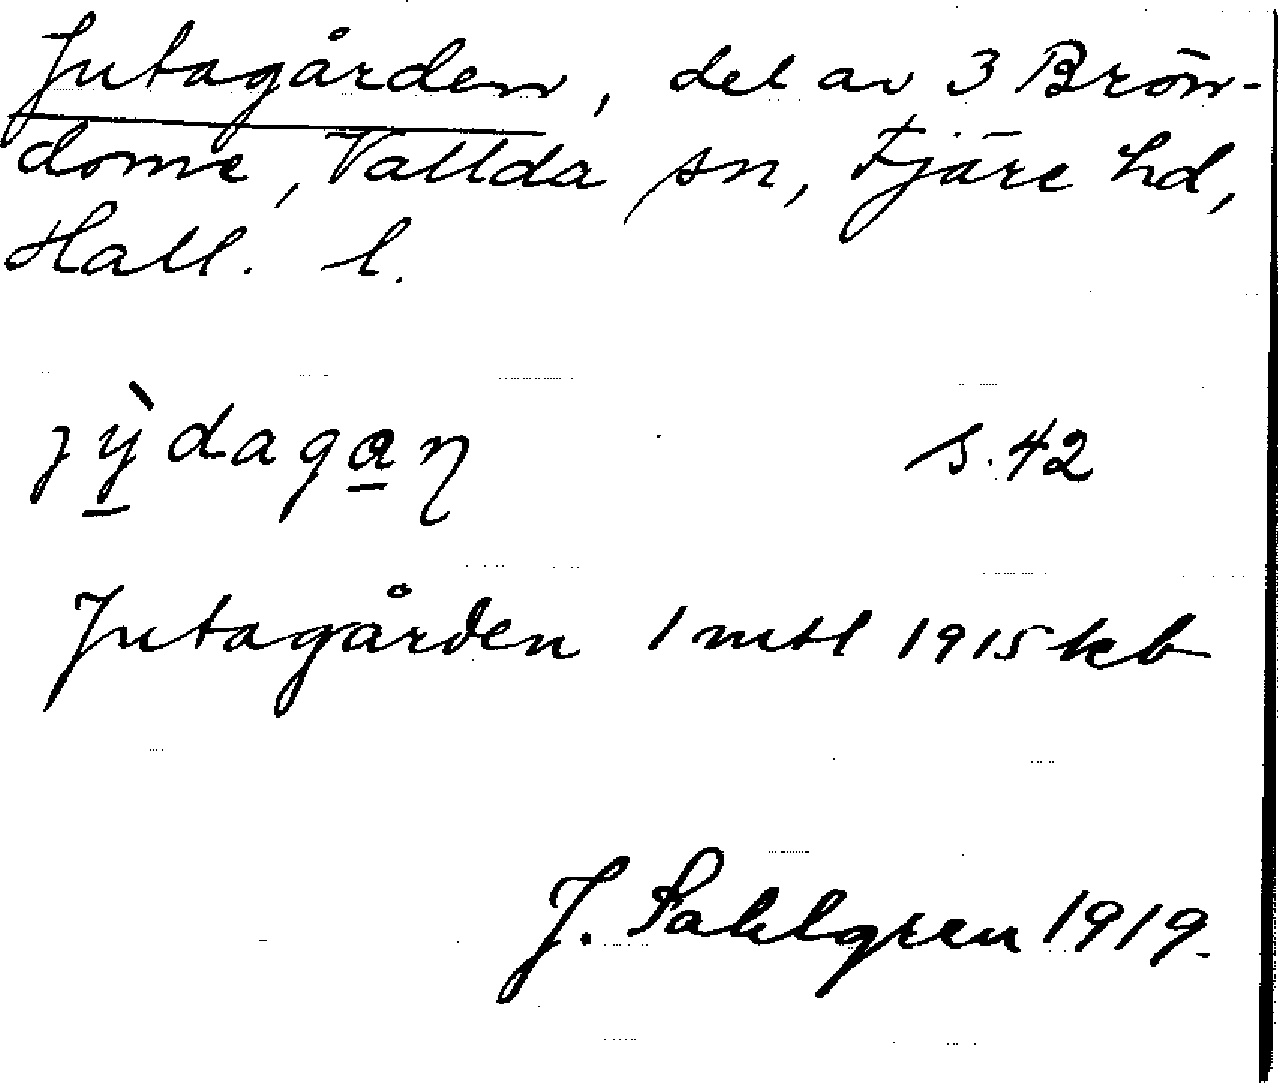 Jutagården, del av 3 Brön-
dome, Vallda sn, Fjäre hd,
Hall. l.
jỳ̱daga̱ɳ s. 42
Jutagården 1 mtl 1915 kb
J. Sahlgren 1919.